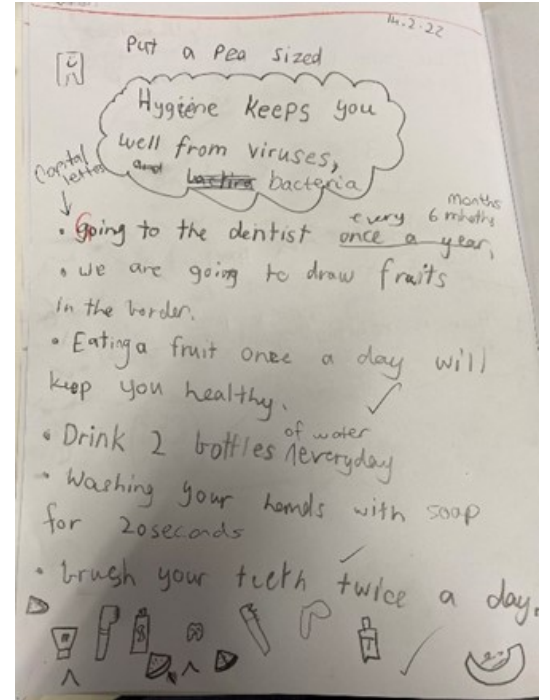 14.2.22
Put a pea sized
Hygiene keeps you
well from viruses,
and bacteria
Capital letter
months
every 6 mhoths
• Going to the dentist once a year,
• we are going to draw fruits
in the border.
• Eating a fruit once a day will
keep you healthy.
of water
• Drink 2 bottles everyday
• Washing your hands with soap
for 20seconds
• brush your teeth twice a day.